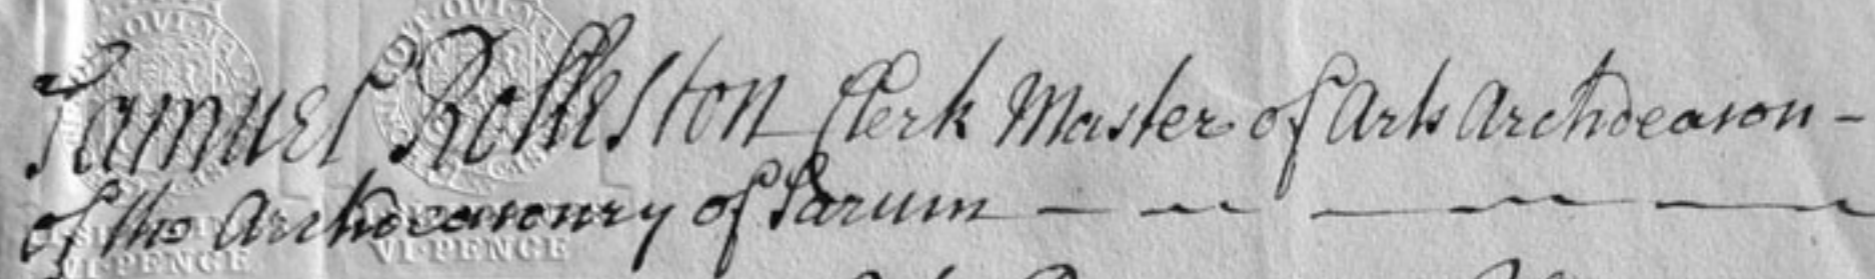 Samuel Rolleston Clerk Master of Arts Archdeacon -
of the Archdeaconry of Sarum
VI·PENCE VI·PENCE